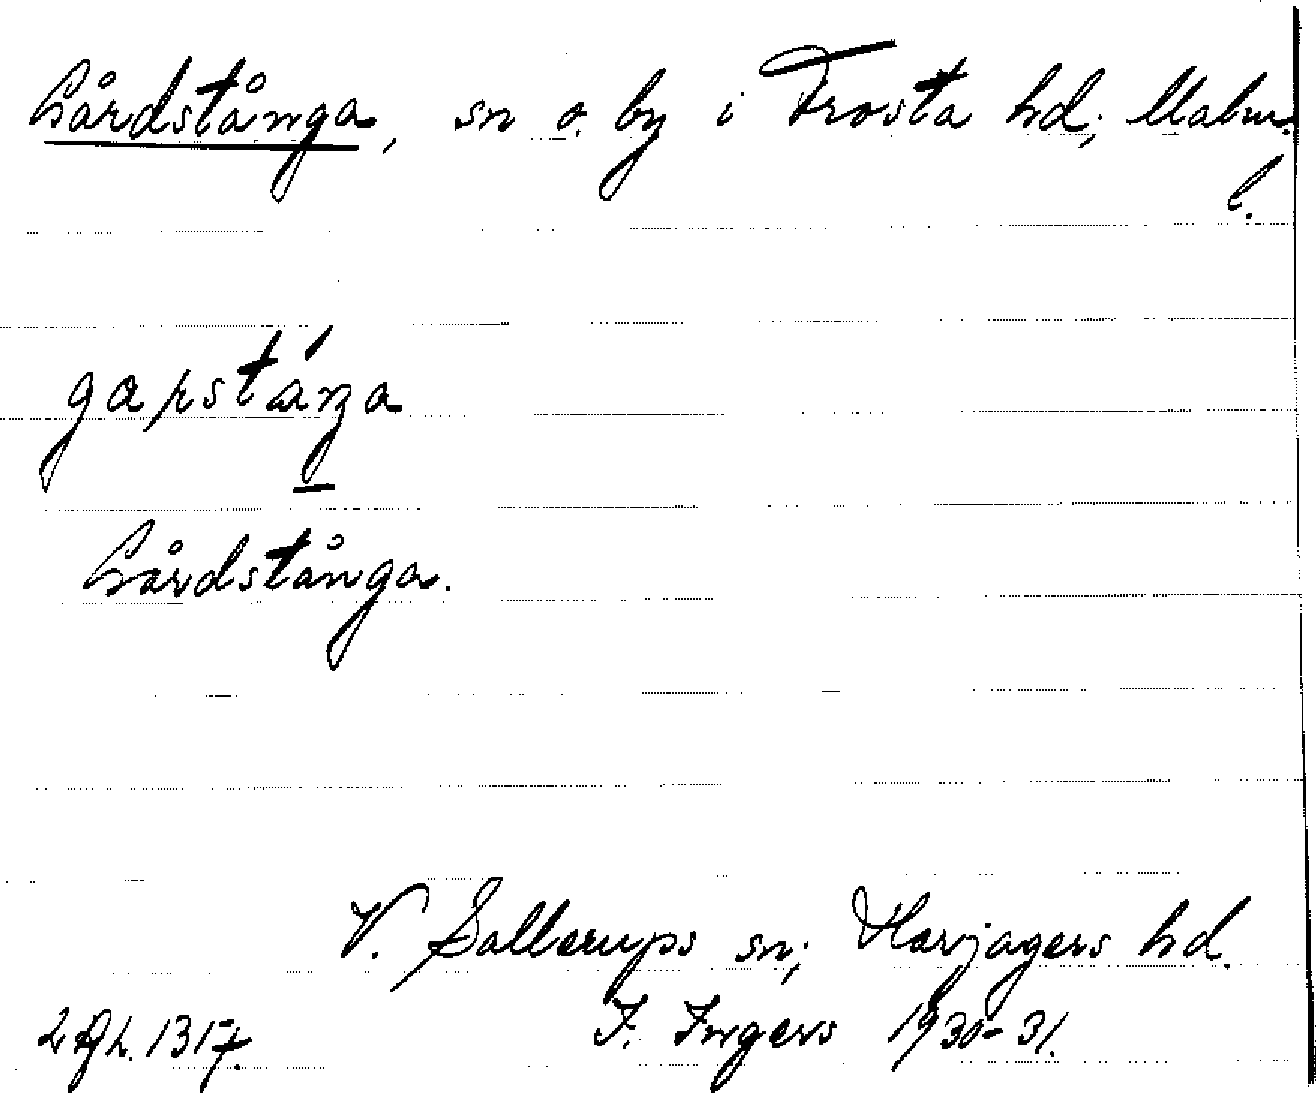 Gårdstånga, sn o. by i Frosta hd; Malm.
l.
Gårdstånga.
V. Sallerups sn; Harjagers hd.
I. Ingers 1930-31.